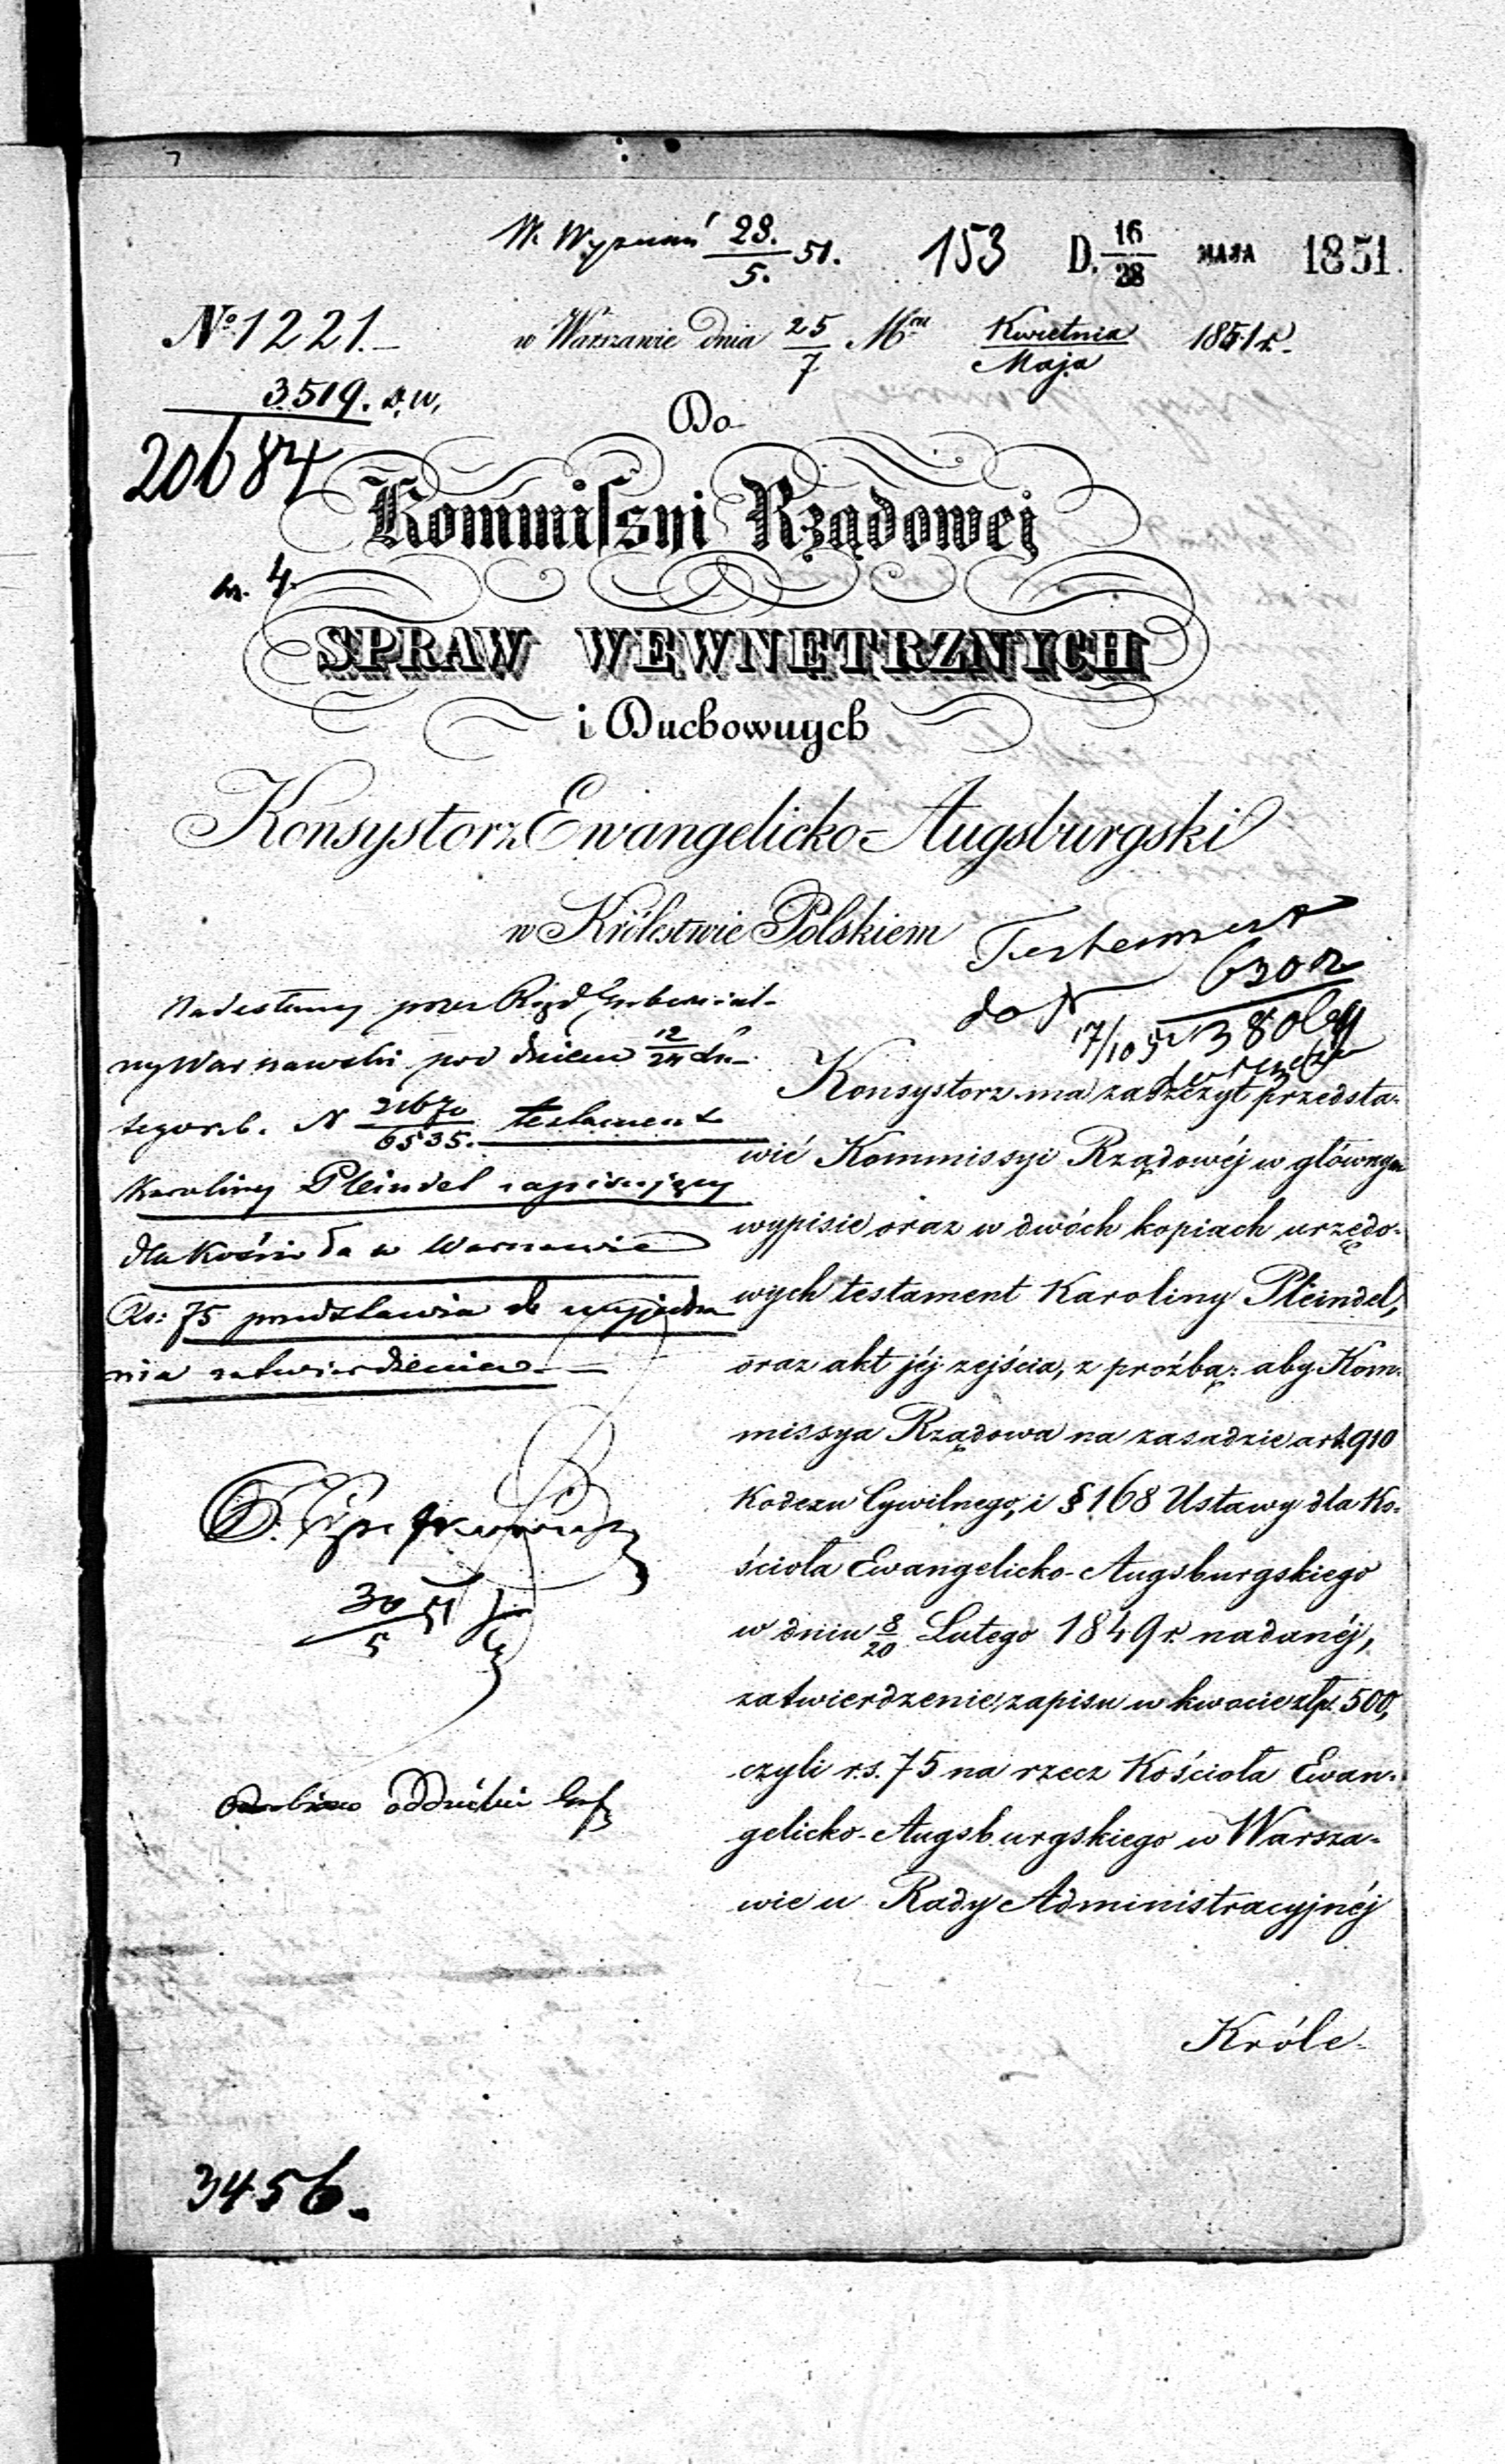 W. Wyznań 28./5. 51. 153 D. 16/28 MAJA 1851.
No 1221.
w Warszawie dnia 25/7 Mca Kwietnia/Maja 1851 r.
3519. D.W.
20684
Do
Kommissyi Rządowej
w. 4.
SPRAW WEWNETRZNYCH
i Duchownych
Konsystorz Ewangelicko-Augsburgski
w Królestwie Polskiem
Testament
do N 6302/13806
17/10 51
Nadesłany przez Rząd Gubernial-
ny Warszawski pod dniem 12/24 Lu-
tego r. b. N 21670/6535. testament
Karoliny Pleindel zapisujący
dla Kościoła w Warszawie
Rs: 75 przedstawia do wyjedna
nia zatwierdzenia.
30/5 51
oddzielnie
Konsystorz ma zaszczyt przedsta-
wić Kommissyi Rządowéj w głównym
wypisie oraz w dwóch kopiach urzędo-
wych testament Karoliny Pleindel,
oraz akt jéj zejścia, z proźbą: aby Kom-
missya Rządowa na zasadzie art. 910
Kodexu Cywilnego, i § 168 Ustawy dla Ko-
ścioła Ewangelicko-Augsburgskiego
w dniu 8/20 Lutego 1849 r. nadanéj,
zatwierdzenie zapisu w kwocie złp. 500,
czyli r.s. 75 na rzecz Kościoła Ewan-
gelicko-Augsburgskiego w Warsza-
wie u Rady Administracyjnéj
Króle-
3456.